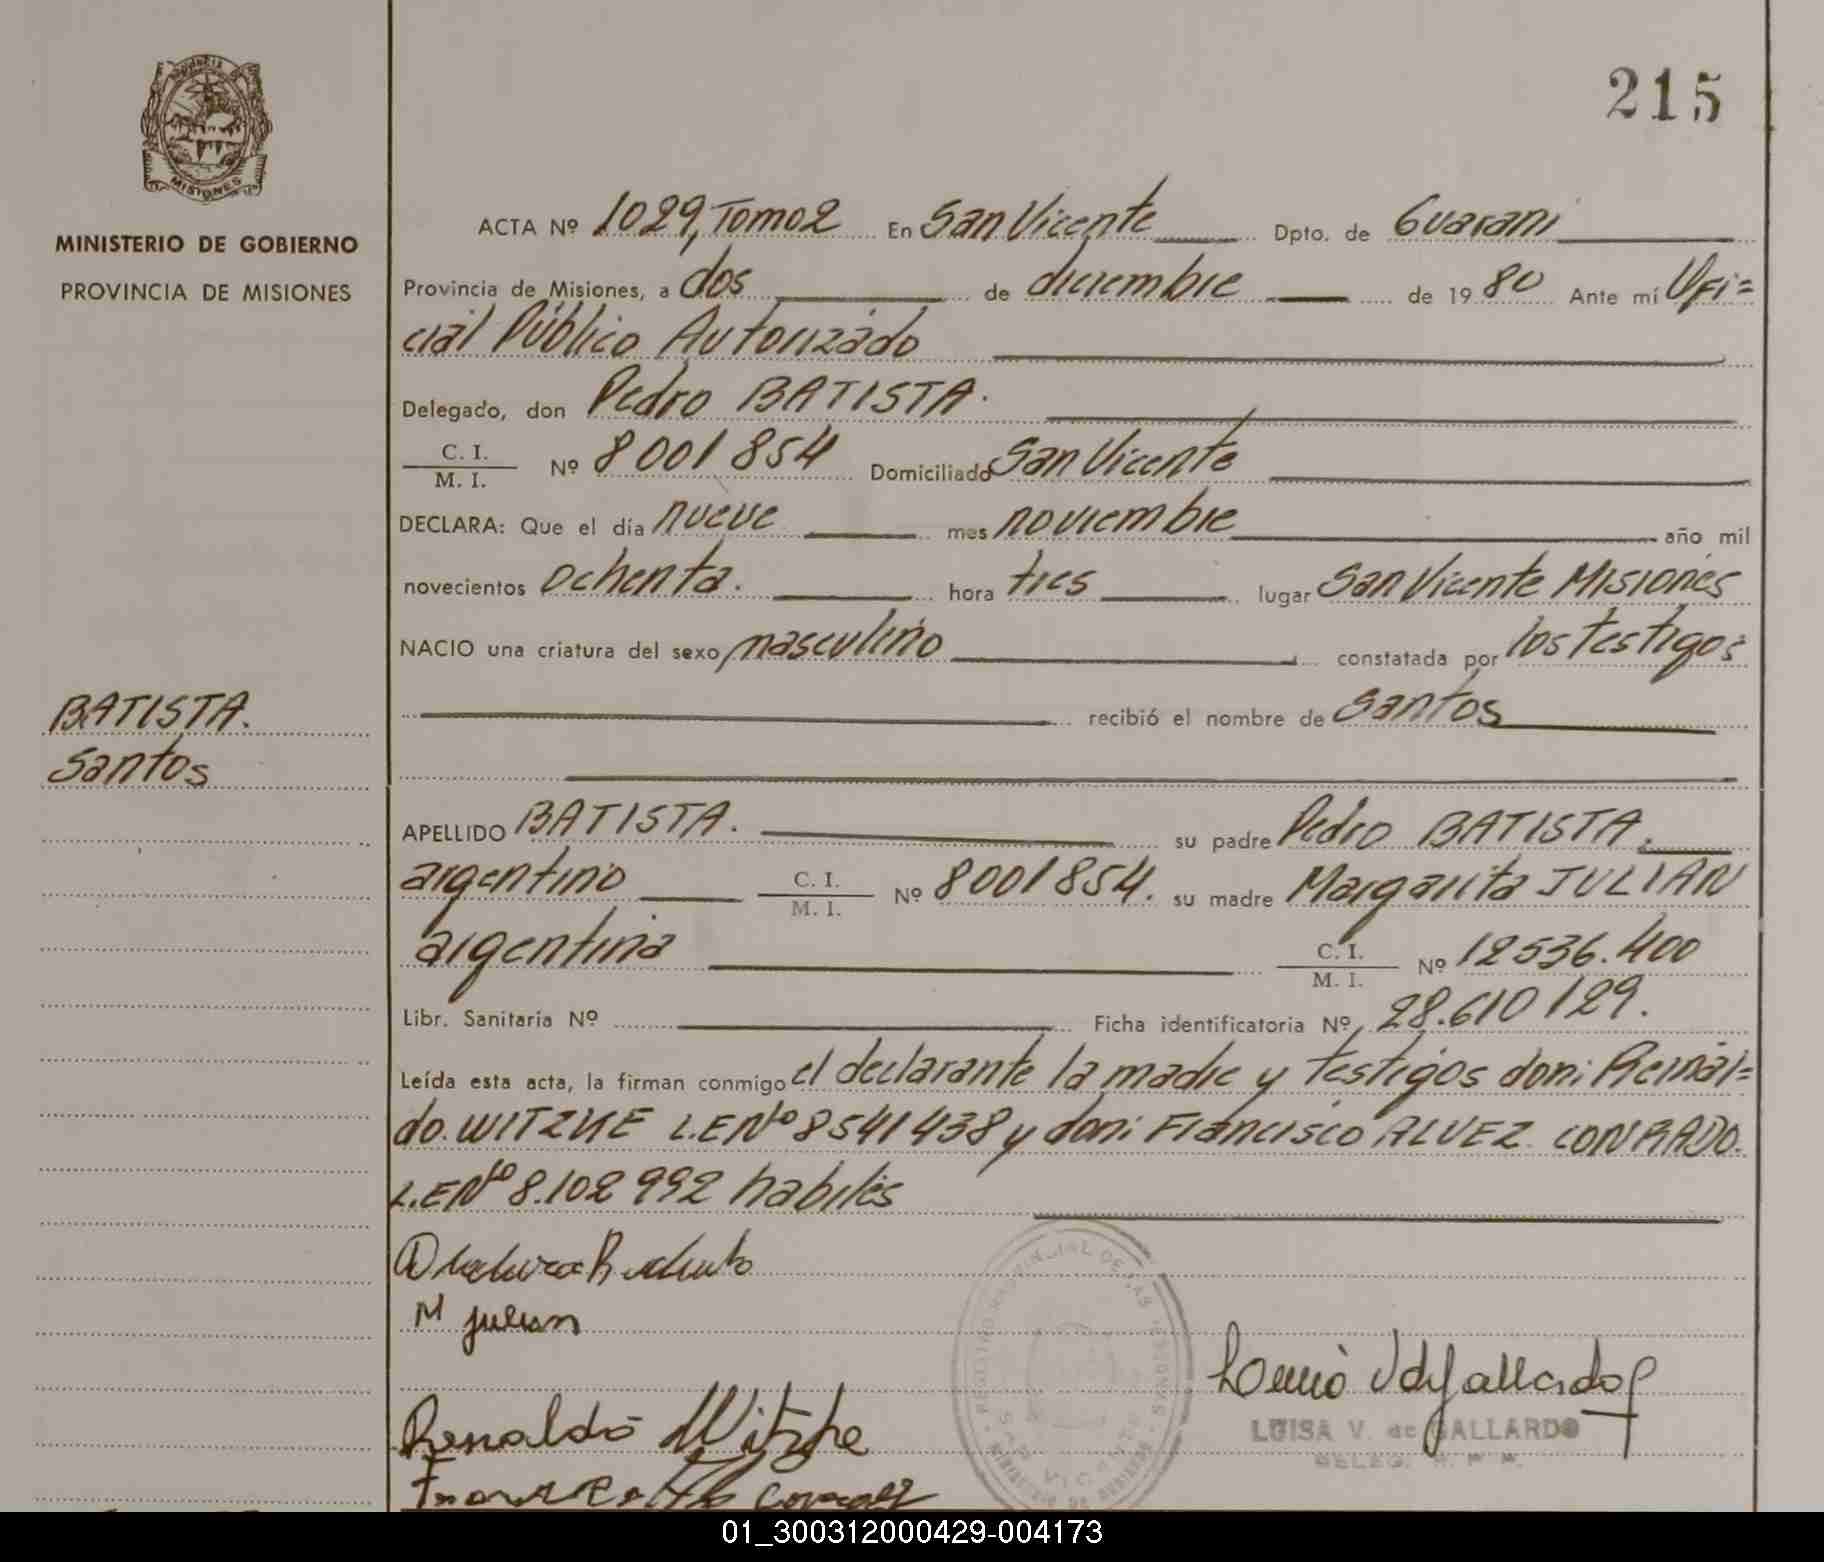 215
MISIONES
MINISTERIO DE GOBIERNO
PROVINCIA DE MISIONES
ACTA Nº 1029, Tomo 2 En San Vicente Dpto. de Guarani
Provincia de Misiones, a dos de diciembre de 19 80 Ante mí Ofi=
cial Público Autorizado
Delegado, don Pedro BATISTA.
C. I.
M. I. Nº 8001854 Domiciliado San Vicente
DECLARA: Que el día nueve mes noviembre año mil
novecientos ochenta. hora tres lugar San Vicente Misiones
NACIO una criatura del sexo masculino constatada por los testigos
recibió el nombre de Santos
BATISTA.
Santos
APELLIDO BATISTA. su padre Pedro BATISTA.
argentino C. I. M. I. Nº 8001854. su madre Margarita JULIAN
argentina C. I. M. I. Nº 12536.400
Libr. Sanitaria Nº Ficha identificatoria Nº 28.610129.
Leída esta acta, la firman conmigo el declarante la madre y testigos don: Reinal=
do. WITZKE L.E Nº 8541438 y don: Francisco ALVEZ CONRADO.
L.E Nº 8.102992 habiles
M Julian
Renaldo Witzke
LUISA V. de GALLARDO
01_300312000429-004173